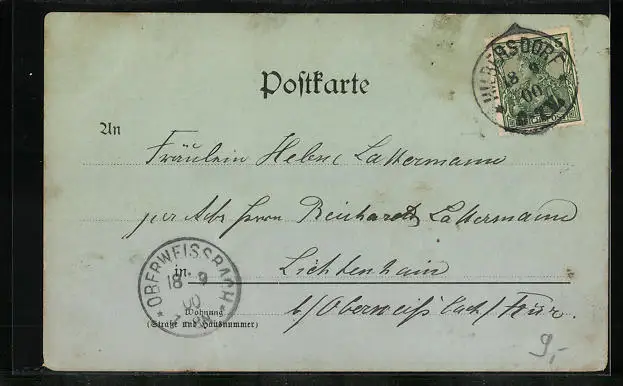 Postkarte
WILMERSDORF
18 9
00
An
Fräulein Helene Lattermann
per Adr Herrn Reinhardt Lattermann
in Lichtenhain
b/Oberweißbach/Tür.
OBERWEISSBACH
18 9
00
Wohnung
(Straße und Hausnummer)
9,-